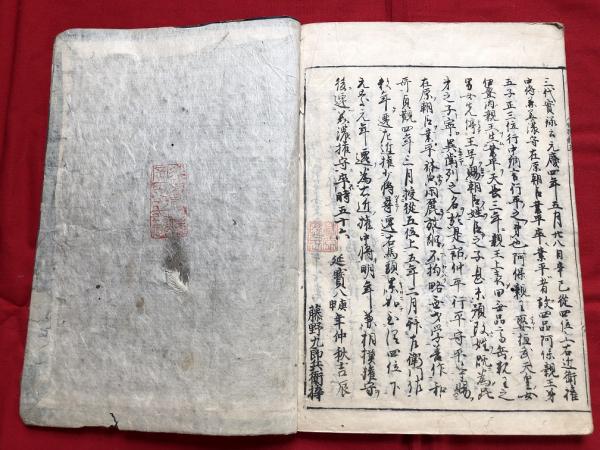 三代實録云元慶四年五月廿八日辛巳從四位上右近衛權
中將兼美濃守在原朝臣業平卒業平者故四品阿保親王第
五子正三位行中納言行平之弟也阿保親王娶桓武天皇女
伊登内親王生業平天長三年親王上表曰無品高岳親王之
男女先停王号賜朝臣姓臣之子息未預改姓既為昆
弟之子寧異列之名於是詔仲平行平守平等賜姓
在原朝臣業平體貌閑麗放縱不拘略無才学善作和
哥貞觀四年三月授從五位上五年二月拝左
数年遷左近權少將尋遷右馬頭累加至從四位下
元慶元年遷為右近權中將明年兼相摸權守
後遷美濃權守卒時五十六 延寶八庚申年仲秋吉辰
藤野九郎兵衛梓